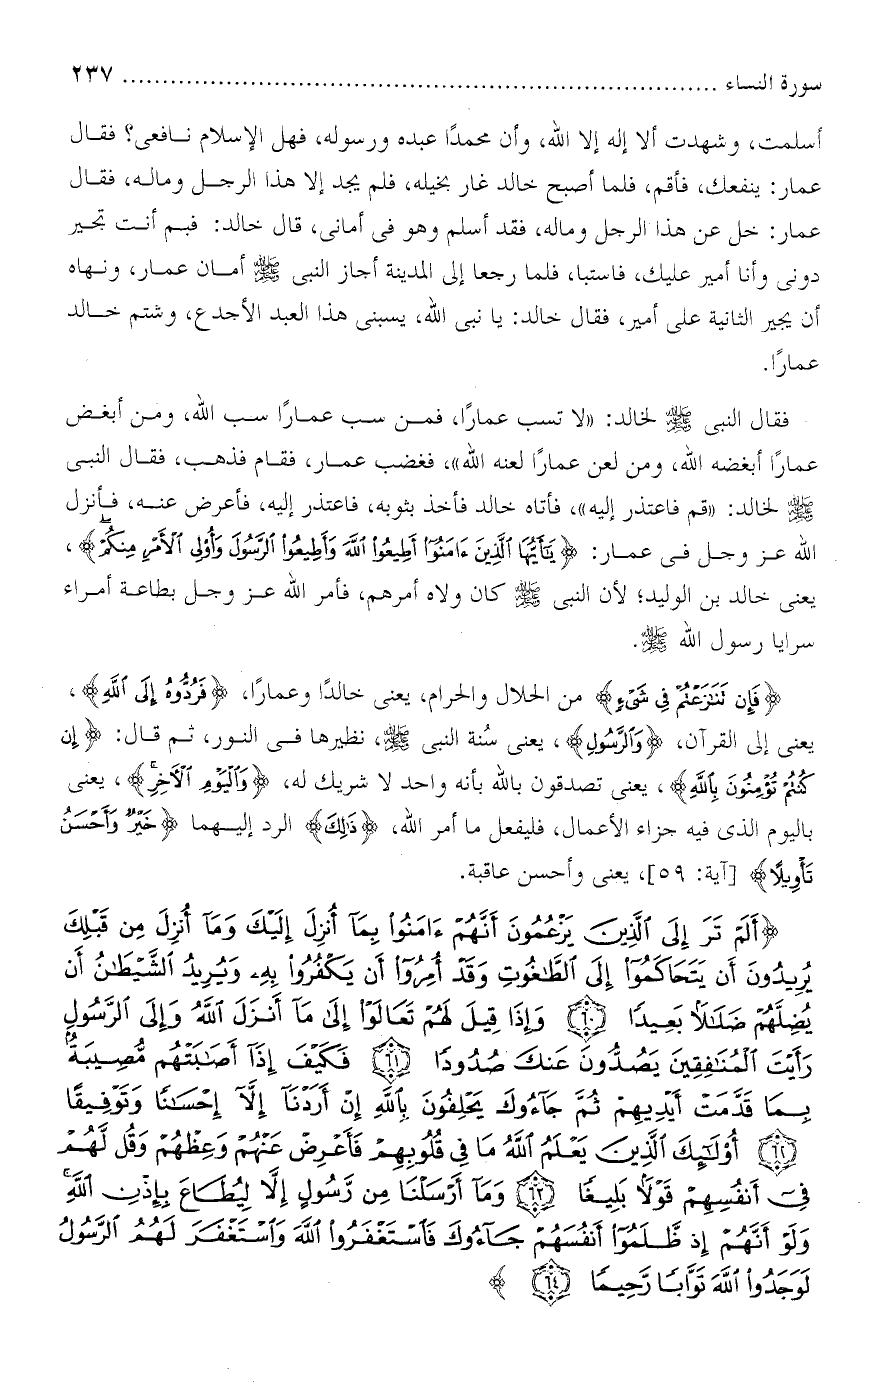 سورة النساء ........................................................................ ٢٣٧
أسلمت، وشهدت ألا إله إلا الله، وأن محمدًا عبده ورسوله، فهل الإسلام نافعى؟ فقال
عمار: ينفعك، فأقم، فلما أصبح خالد غار بخيله، فلم يجد إلا هذا الرجل وماله، فقال
عمار: خل عن هذا الرجل وماله، فقد أسلم وهو فى أمانى، قال خالد: فبم أنت تجير
دونى وأنا أمير عليك، فاستبا، فلما رجعا إلى المدينة أجاز النبى ﷺ أمان عمار، ونهاه
أن يجير الثانية على أمير، فقال خالد: يا نبى الله، يسبنى هذا العبد الأجدع، وشتم خالد
عمارًا.
فقال النبى ﷺ لخالد: «لا تسب عمارًا، فمن سب عمارًا سب الله، ومن أبغض
عمارًا أبغضه الله، ومن لعن عمارًا لعنه الله»، فغضب عمار، فقام فذهب، فقال النبى
ﷺ لخالد: «قم فاعتذر إليه»، فأتاه خالد فأخذ بثوبه، فاعتذر إليه، فأعرض عنه، فأنزل
الله عز وجل فى عمار: ﴿يَٰٓأَيُّهَا ٱلَّذِينَ ءَامَنُوٓا۟ أَطِيعُوا۟ ٱللَّهَ وَأَطِيعُوا۟ ٱلرَّسُولَ وَأُو۟لِى ٱلْأَمْرِ مِنكُمْ ۖ﴾،
يعنى خالد بن الوليد؛ لأن النبى ﷺ كان ولاه أمرهم، فأمر الله عز وجل بطاعة أمراء
سرايا رسول الله ﷺ.
﴿فَإِن تَنَٰزَعْتُمْ فِى شَىْءٍ﴾ من الحلال والحرام، يعنى خالدًا وعمارًا، ﴿فَرُدُّوهُ إِلَى ٱللَّهِ﴾،
يعنى إلى القرآن، ﴿وَٱلرَّسُولِ﴾، يعنى سُنة النبى ﷺ، نظيرها فى النور، ثم قال: ﴿إِن
كُنتُمْ تُؤْمِنُونَ بِٱللَّهِ﴾، يعنى تصدقون بالله بأنه واحد لا شريك له، ﴿وَٱلْيَوْمِ ٱلْءَاخِرِ ۚ﴾، يعنى
باليوم الذى فيه جزاء الأعمال، فليفعل ما أمر الله، ﴿ذَٰلِكَ﴾ الرد إليهما ﴿خَيْرٌ وَأَحْسَنُ
تَأْوِيلًا﴾ [آية: ٥٩]، يعنى وأحسن عاقبة.
﴿أَلَمْ تَرَ إِلَى ٱلَّذِينَ يَزْعُمُونَ أَنَّهُمْ ءَامَنُوا۟ بِمَآ أُنزِلَ إِلَيْكَ وَمَآ أُنزِلَ مِن قَبْلِكَ
يُرِيدُونَ أَن يَتَحَاكَمُوٓا۟ إِلَى ٱلطَّٰغُوتِ وَقَدْ أُمِرُوٓا۟ أَن يَكْفُرُوا۟ بِهِۦ وَيُرِيدُ ٱلشَّيْطَٰنُ أَن
يُضِلَّهُمْ ضَلَٰلًۢا بَعِيدًا ٦٠ وَإِذَا قِيلَ لَهُمْ تَعَالَوْا۟ إِلَىٰ مَآ أَنزَلَ ٱللَّهُ وَإِلَى ٱلرَّسُولِ
رَأَيْتَ ٱلْمُنَٰفِقِينَ يَصُدُّونَ عَنكَ صُدُودًا ٦١ فَكَيْفَ إِذَآ أَصَٰبَتْهُم مُّصِيبَةٌۢ
بِمَا قَدَّمَتْ أَيْدِيهِمْ ثُمَّ جَآءُوكَ يَحْلِفُونَ بِٱللَّهِ إِنْ أَرَدْنَآ إِلَّآ إِحْسَٰنًا وَتَوْفِيقًا
٦٢ أُو۟لَٰٓئِكَ ٱلَّذِينَ يَعْلَمُ ٱللَّهُ مَا فِى قُلُوبِهِمْ فَأَعْرِضْ عَنْهُمْ وَعِظْهُمْ وَقُل لَّهُمْ
فِىٓ أَنفُسِهِمْ قَوْلًۢا بَلِيغًا ٦٣ وَمَآ أَرْسَلْنَا مِن رَّسُولٍ إِلَّا لِيُطَاعَ بِإِذْنِ ٱللَّهِ ۚ
وَلَوْ أَنَّهُمْ إِذ ظَّلَمُوٓا۟ أَنفُسَهُمْ جَآءُوكَ فَٱسْتَغْفَرُوا۟ ٱللَّهَ وَٱسْتَغْفَرَ لَهُمُ ٱلرَّسُولُ
لَوَجَدُوا۟ ٱللَّهَ تَوَّابًا رَّحِيمًا ٦٤ ﴾